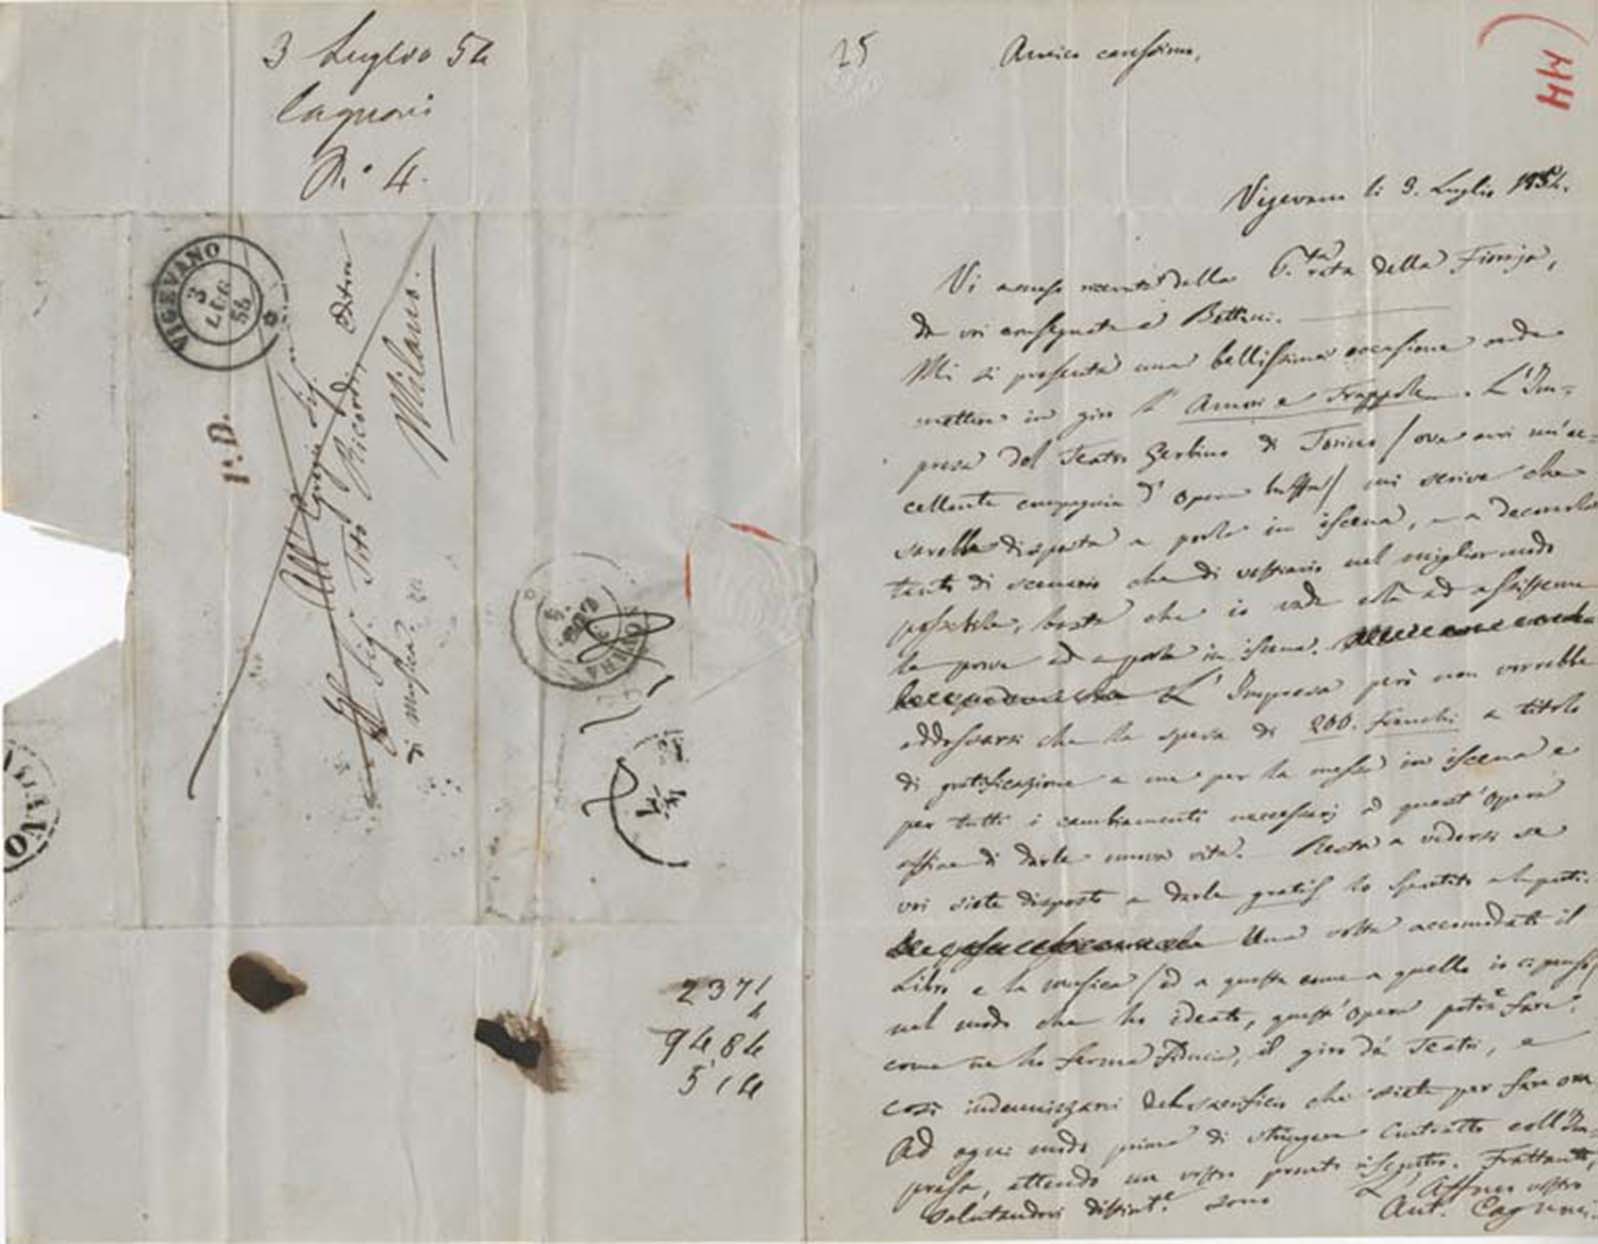 3 Luglio 54
Cagnoni
N.º 4.
VIGEVANO
3
LUG
54
1ª.D.
All' Egregio Sig.
Sig.r Tito Ricordi, Editore
di musica.
Milano.
2371
4
9484
514
25
Amico carissimo,
44
Vigevano li 3. Luglio 1854.
Vi accuso ricevuta della 6.ta rata della Fioraja,
da voi consegnata a Bettini.
Mi si presenta una bellissima occasione onde
mettere in giro l' Amori e Trappole. L'Im-
presa del Teatro Gerbino di Torino / ove avvi un'ec-
cellente compagnia d' opera buffa / mi scrive che
sarebbe disposta a porlo in iscena, e a decorarlo
tanto di scenario che di vestiario nel miglior modo
possibile, basta che io vada ad assisterne
le prove ed a porla in iscena.
L' Impresa però non vorrebbe
addossarsi che la spesa di 200. Franchi a titolo
di gratificazione a me per la messa in iscena e
per tutti i cambiamenti necessarj a quest' opera
affine di darle nuova vita. Resta a vedersi se
voi siete disposto a darle gratis lo spartito e le parti.
Una volta accomodati il
Libro e la musica / ed a questa come a quello io ci penso /
nel modo che ho ideato, quest' opera potrà fare,
come ne ho ferma fiducia, il giro dei Teatri, e
così indennizzarvi del sacrificio che siete per fare ora.
Ad ogni modo prima di stringere Contratto coll'Im-
presa, attendo un vostro pronto riscontro. Frattanto,
salutandovi distint.e sono
L' Affmo vostro
Ant. Cagnoni.